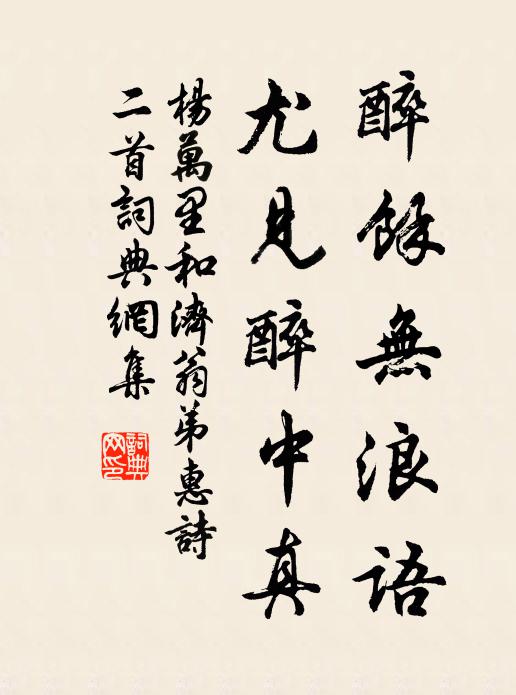 醉餘無浪語
尤見醉中真
楊萬里和濟翁弟惠詩
二首詞典網集
詞典网印